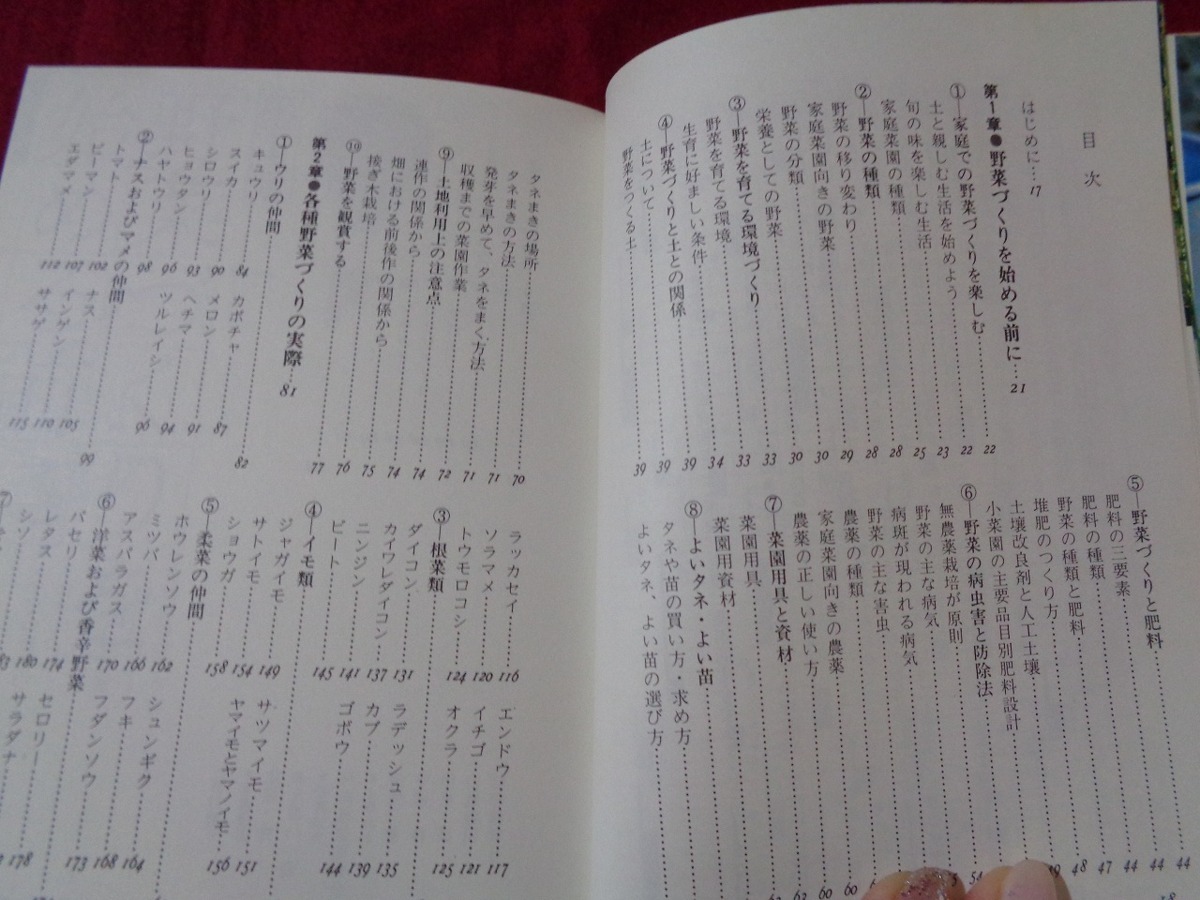 目次
はじめに…17
第1章●野菜づくりを始める前に…21
①—家庭での野菜づくりを楽しむ……22
土と親しむ生活を始めよう……22
旬の味を楽しむ生活……23
家庭菜園の種類……25
②—野菜の種類……28
野菜の移り変わり……28
家庭菜園向きの野菜……29
野菜の分類……30
栄養としての野菜……30
③—野菜を育てる環境づくり……33
野菜を育てる環境……33
生育に好ましい条件……34
④—野菜づくりと土との関係……39
土について……39
野菜をつくる土……39
⑤—野菜づくりと肥料……44
肥料の三要素……44
肥料の種類……44
野菜の種類と肥料……47
堆肥のつくり方……48
土壌改良剤と人工土壌……49
小菜園の主要品目別肥料設計
⑥—野菜の病虫害と防除法……54
無農薬栽培が原則
野菜の主な病気
病斑が現われる病気
野菜の主な害虫
農薬の種類……60
家庭菜園向きの農薬……60
農薬の正しい使い方……62
⑦—菜園用具と資材
菜園用具
菜園用資材
⑧—よいタネ・よい苗
タネや苗の買い方・求め方
よいタネ、よい苗の選び方
タネまきの場所……70
タネまきの方法……71
発芽を早めて、タネをまく方法……71
収穫までの菜園作業……72
⑨—土地利用上の注意点……74
連作の関係から……74
畑における前後作の関係から……75
接ぎ木栽培……76
⑩—野菜を観賞する……77
第2章●各種野菜づくりの実際……81
①—ウリの仲間……82
キュウリ……84
カボチャ……87
スイカ……90
メロン……91
シロウリ……93
ヘチマ……94
ヒョウタン……96
ツルレイシ……96
ハヤトウリ……98
②—ナスおよびマメの仲間……99
トマト……102
ナス……105
ピーマン……107
インゲン……110
エダマメ……112
ササゲ……115
ラッカセイ……116
エンドウ……117
ソラマメ……120
イチゴ……121
トウモロコシ……124
オクラ……125
③—根菜類
ダイコン……131
ラデッシュ……135
カイワレダイコン……137
カブ……139
ニンジン……141
ゴボウ……144
ビート……145
④—イモ類
ジャガイモ……149
サツマイモ……151
サトイモ……154
ヤマイモとヤマノイモ……156
ショウガ……158
⑤—柔菜の仲間
ホウレンソウ……162
シュンギク……164
ミツバ……166
フキ……168
アスパラガス……170
フダンソウ……173
⑥—洋菜および香辛野菜
パセリ……174
セロリー……178
レタス……180
サラダナ
シソ……183
⑦